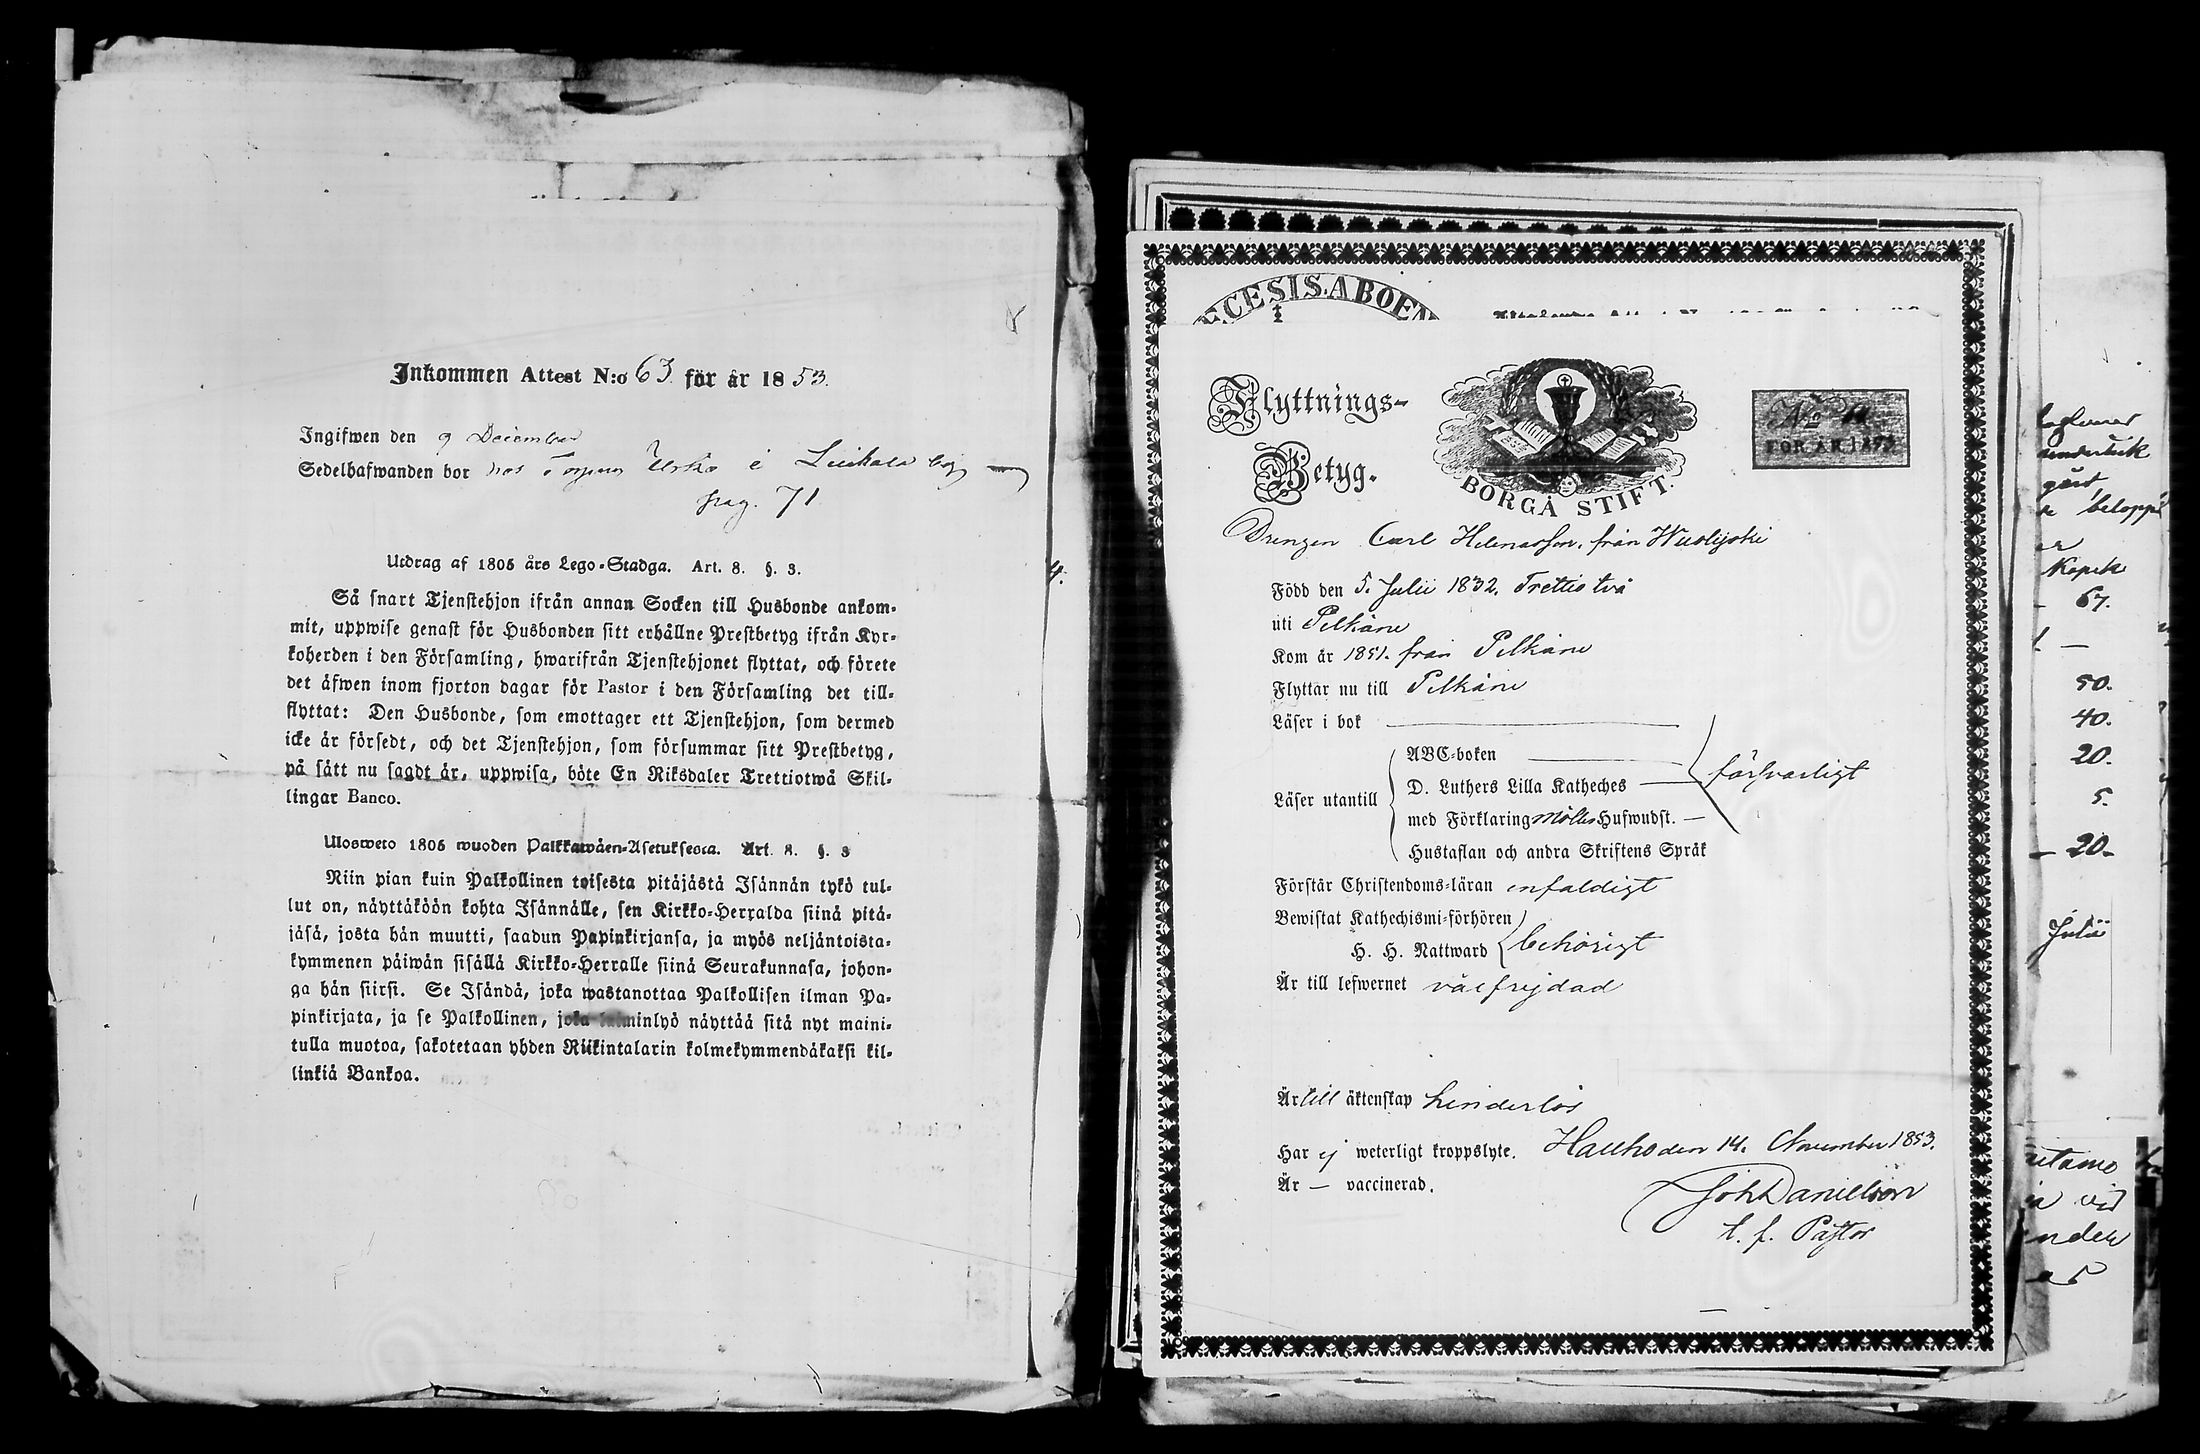 Inkommen Attest N:o 63. för år 1853.
Ingifwen den 9 December
Sedelhafwanden bor hos Torpar i Luikala by
pag. 71
Utdrag af 1805 års Lego-Stadga. Art. 8. §. 3.
Så snart Tjenstehjon ifrån annan Socken till Husbonde ankom-
mit, uppwise genast för Husbonden sitt erhållne Prestbetyg ifrån Kyr-
koherden i den Församling, hwarifrån Tjenstehjonet flyttat, och förete
det äfwen inom fjorton dagar för Pastor i den Församling det till-
flyttat: Den Husbonde, som emottager ett Tjenstehjon, som dermed
icke är försedt, och det Tjenstehjon, som försummar sitt Prestbetyg,
på sätt nu sagdt är, uppwisa, böte En Riksdaler Trettiotwå Skil-
lingar Banco.
Ulosweto 1805 wuoden Palkkawäen-Asetuksesta. Art. 8. §. 3
Niin pian kuin Palkollinen toisesta pitäjästä Isännän tykö tul-
lut on, näyttäköön kohta Isännälle, sen Kirkko-Herralda siinä pitä-
jäsä, josta hän muutti, saadun Papinkirjansa, ja myös neljäntoista-
kymmenen päiwän sisällä Kirkko-Herralle siinä Seurakunnasa, johon-
ga hän siirsi. Se Isändä, joka wastanottaa Palkollisen ilman Pa-
pinkirjata, ja se Palkollinen, joka laiminlyö näyttää sitä nyt maini-
tulla muotoa, sakotetaan yhden Riikintalarin kolmekymmendäkaksi kil-
linkiä Bankoa.
4.
ECESIS.ABOEN
Flyttnings-
Betyg.
BORGÅ STIFT.
FÖR ÅR 1853.
Drengen Carl Helenasson, från Wuolijoki
Född den 5. Julii 1832. Trettio två
uti Pelkäne
Kom år 1851. från Pelkäne
Flyttar nu till Pelkäne
Läser i bok
Läser utantill
ABC-boken
D. Luthers Lilla Katheches
med Förklaring Möllers Hufwudst.
Hustaflan och andra Skriftens Språk
försvarligt
Förstår Christendoms-läran enfaldigt
Bewistat Kathechismi-förhören
H. H. Nattward
behörigt
Är till lefwernet välfrejdad
Är till äktenskap hinderlös
Har ej weterligt kroppslyte. Hauho den 14. November 1853.
Är — vaccinerad.
Joh Danielsson
t. f. Pastor
gård
belopp
Kopek
67.
50.
40.
20.
5.
20.
Julii